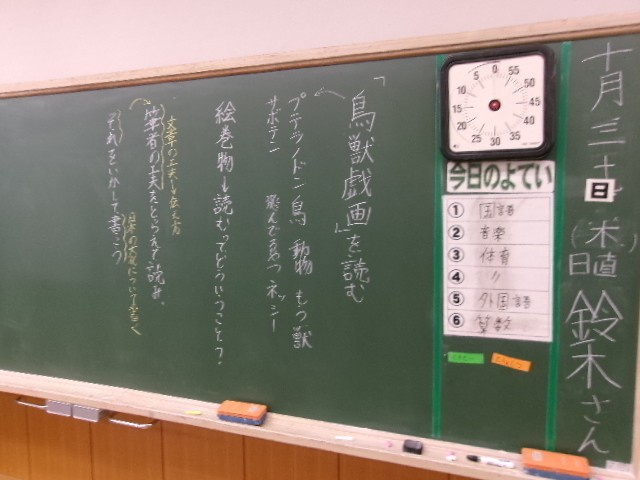 十月三十日(木)
日直 鈴木さん
0
55
50
45
40
35
30
25
20
15
10
5
今日のよてい
① 国語
② 音楽
③ 体育
④ 〃
⑤ 外国語
⑥ 算数
「鳥獣戯画」を読む
プテラノドン 鳥 動物 もつ獣
サボテン
ネッシー
絵巻物を読むってどういうこと?
筆者の工夫をとらえて読み、
それをいかして書こう